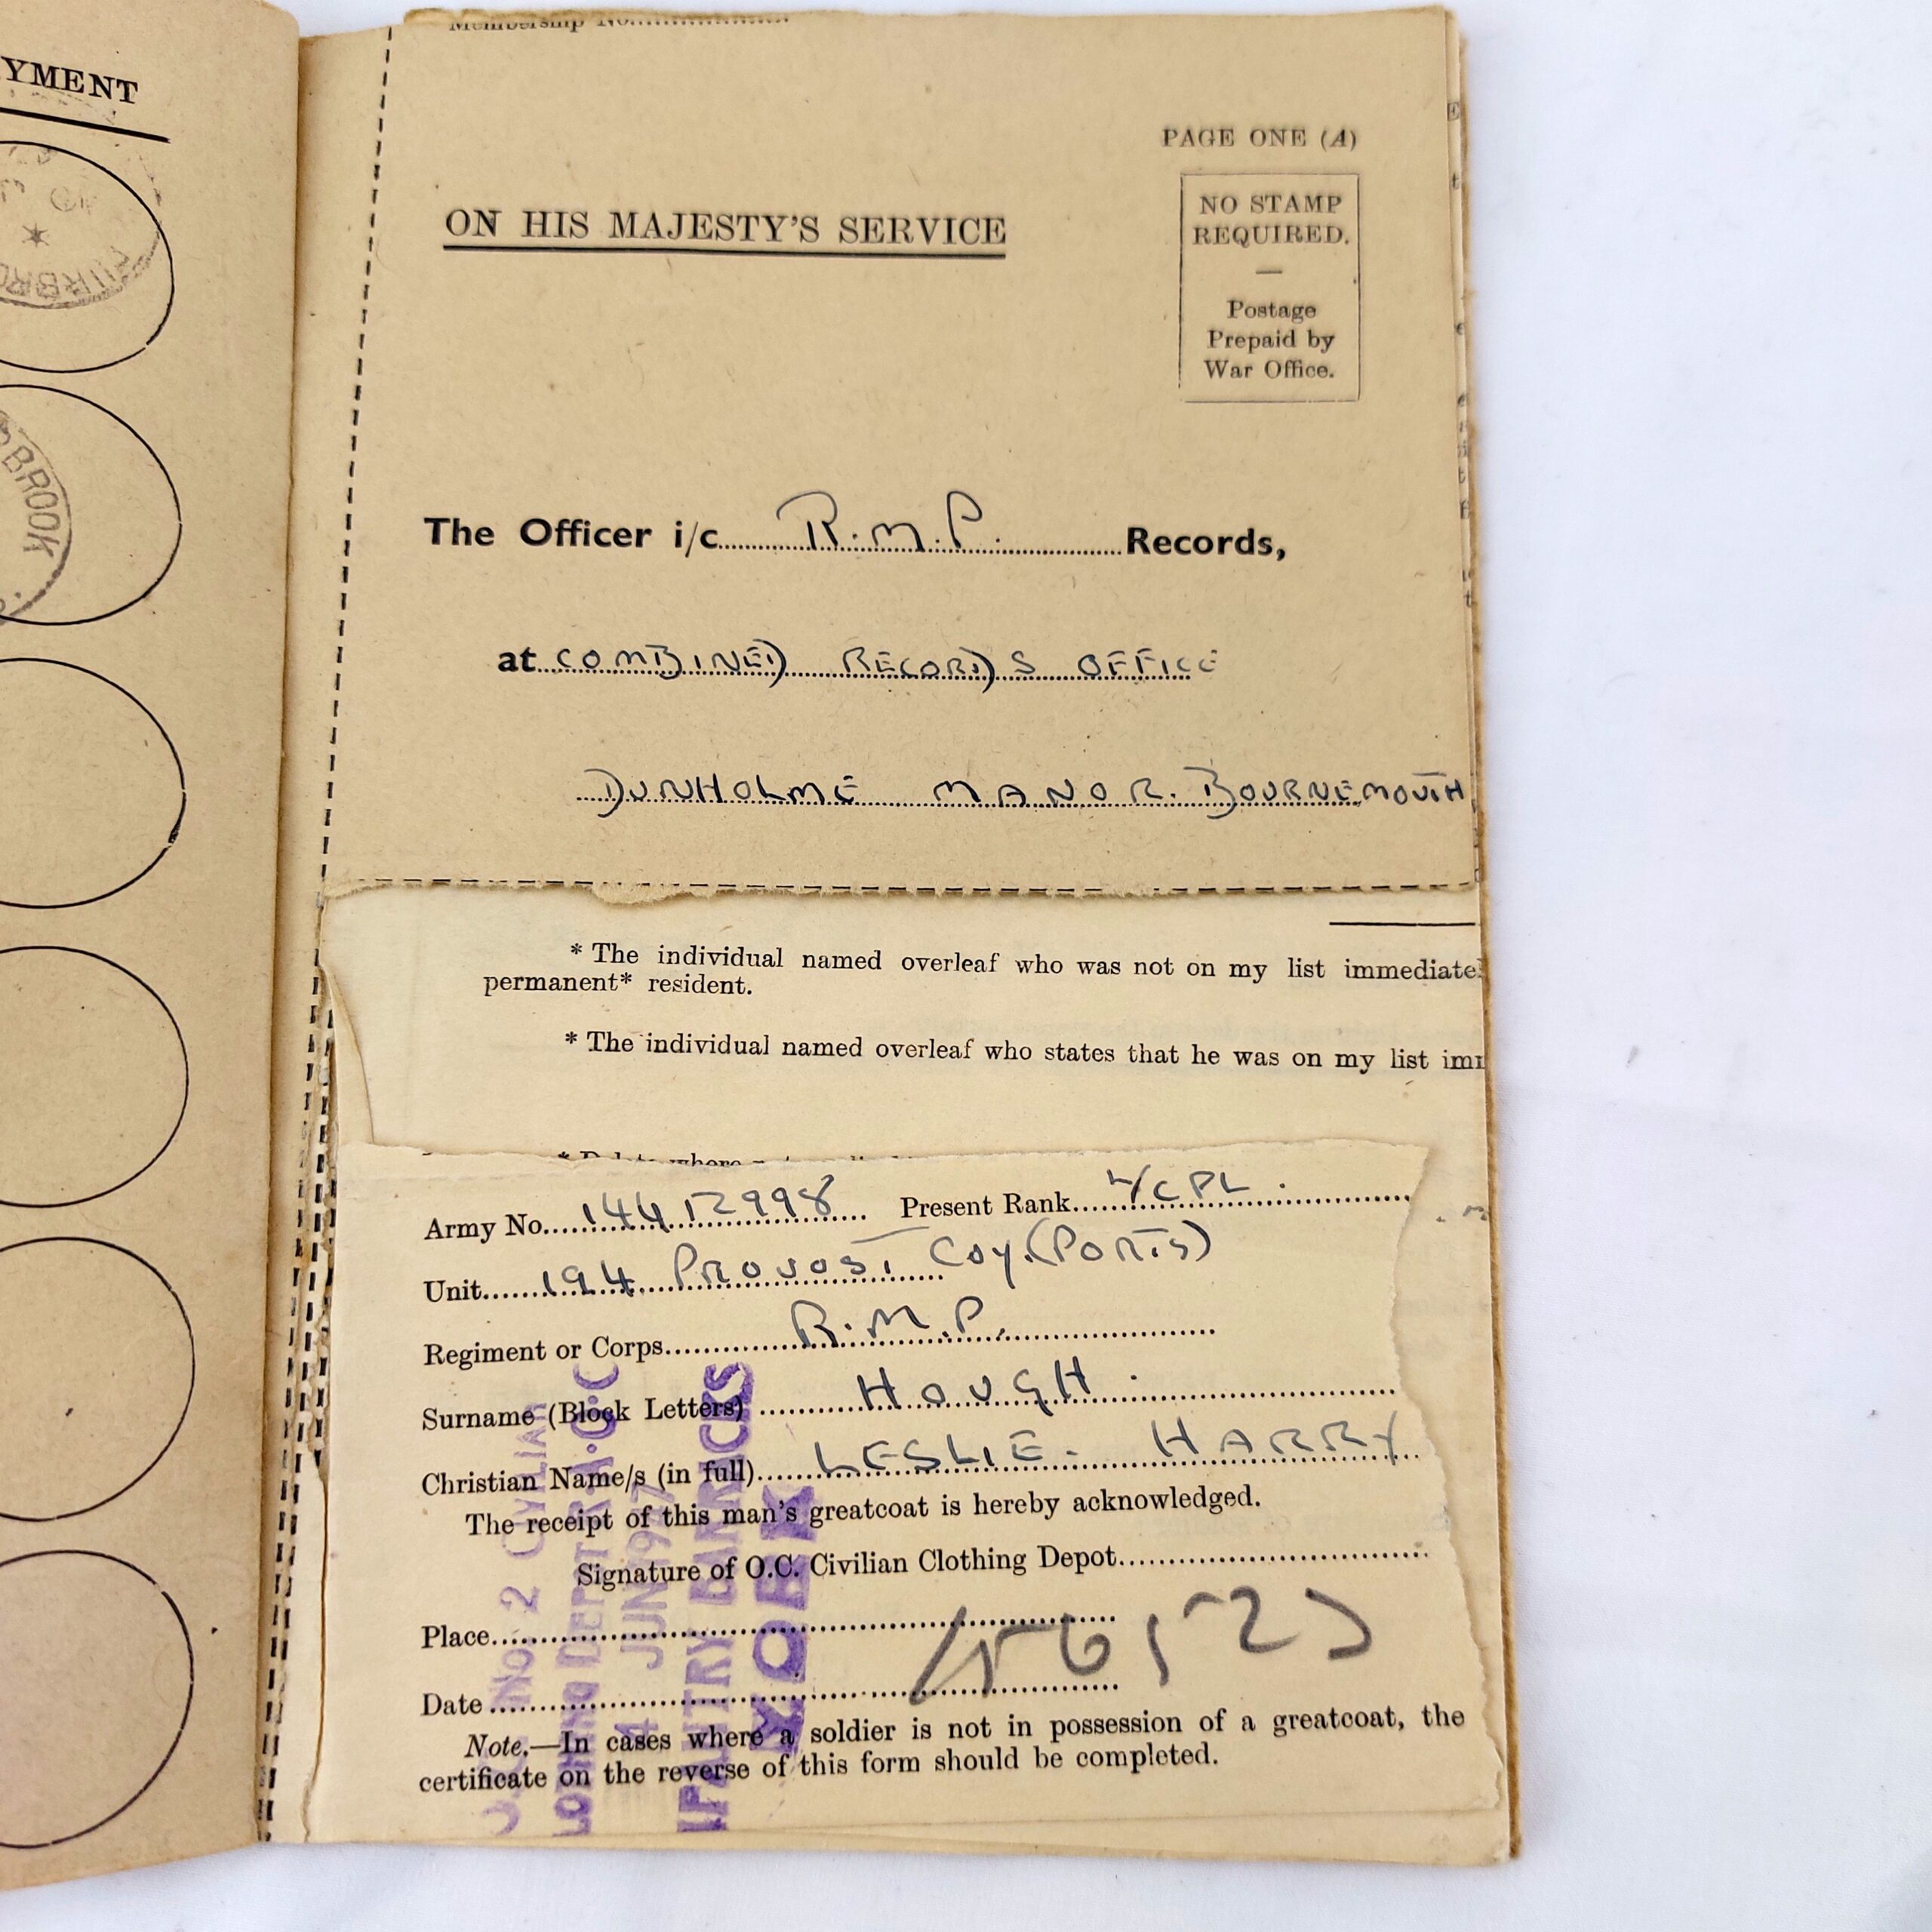 YMENT
BROOK
Membership No.
PAGE ONE (A)
NO STAMP
REQUIRED.
—
Postage
Prepaid by
War Office.
ON HIS MAJESTY'S SERVICE
The Officer i/c R.M.P. Records,
at COMBINED RECORDS OFFICE
DUNHOLME MANOR. BOURNEMOUTH
* The individual named overleaf who was not on my list immediate
permanent* resident.
* The individual named overleaf who states that he was on my list
Army No. 14412998 Present Rank L/CPL.
Unit 194 PROVOST Coy. (PORTS)
Regiment or Corps R.M.P.
Surname (Block Letters) HOUGH.
Christian Name/s (in full) LESLIE - HARRY
The receipt of this man's greatcoat is hereby acknowledged.
Signature of O.C. Civilian Clothing Depot
Place
Date
Note.—In cases where a soldier is not in possession of a greatcoat, the
certificate on the reverse of this form should be completed.
No 2
JUN 1947
BARRACKS
YORK